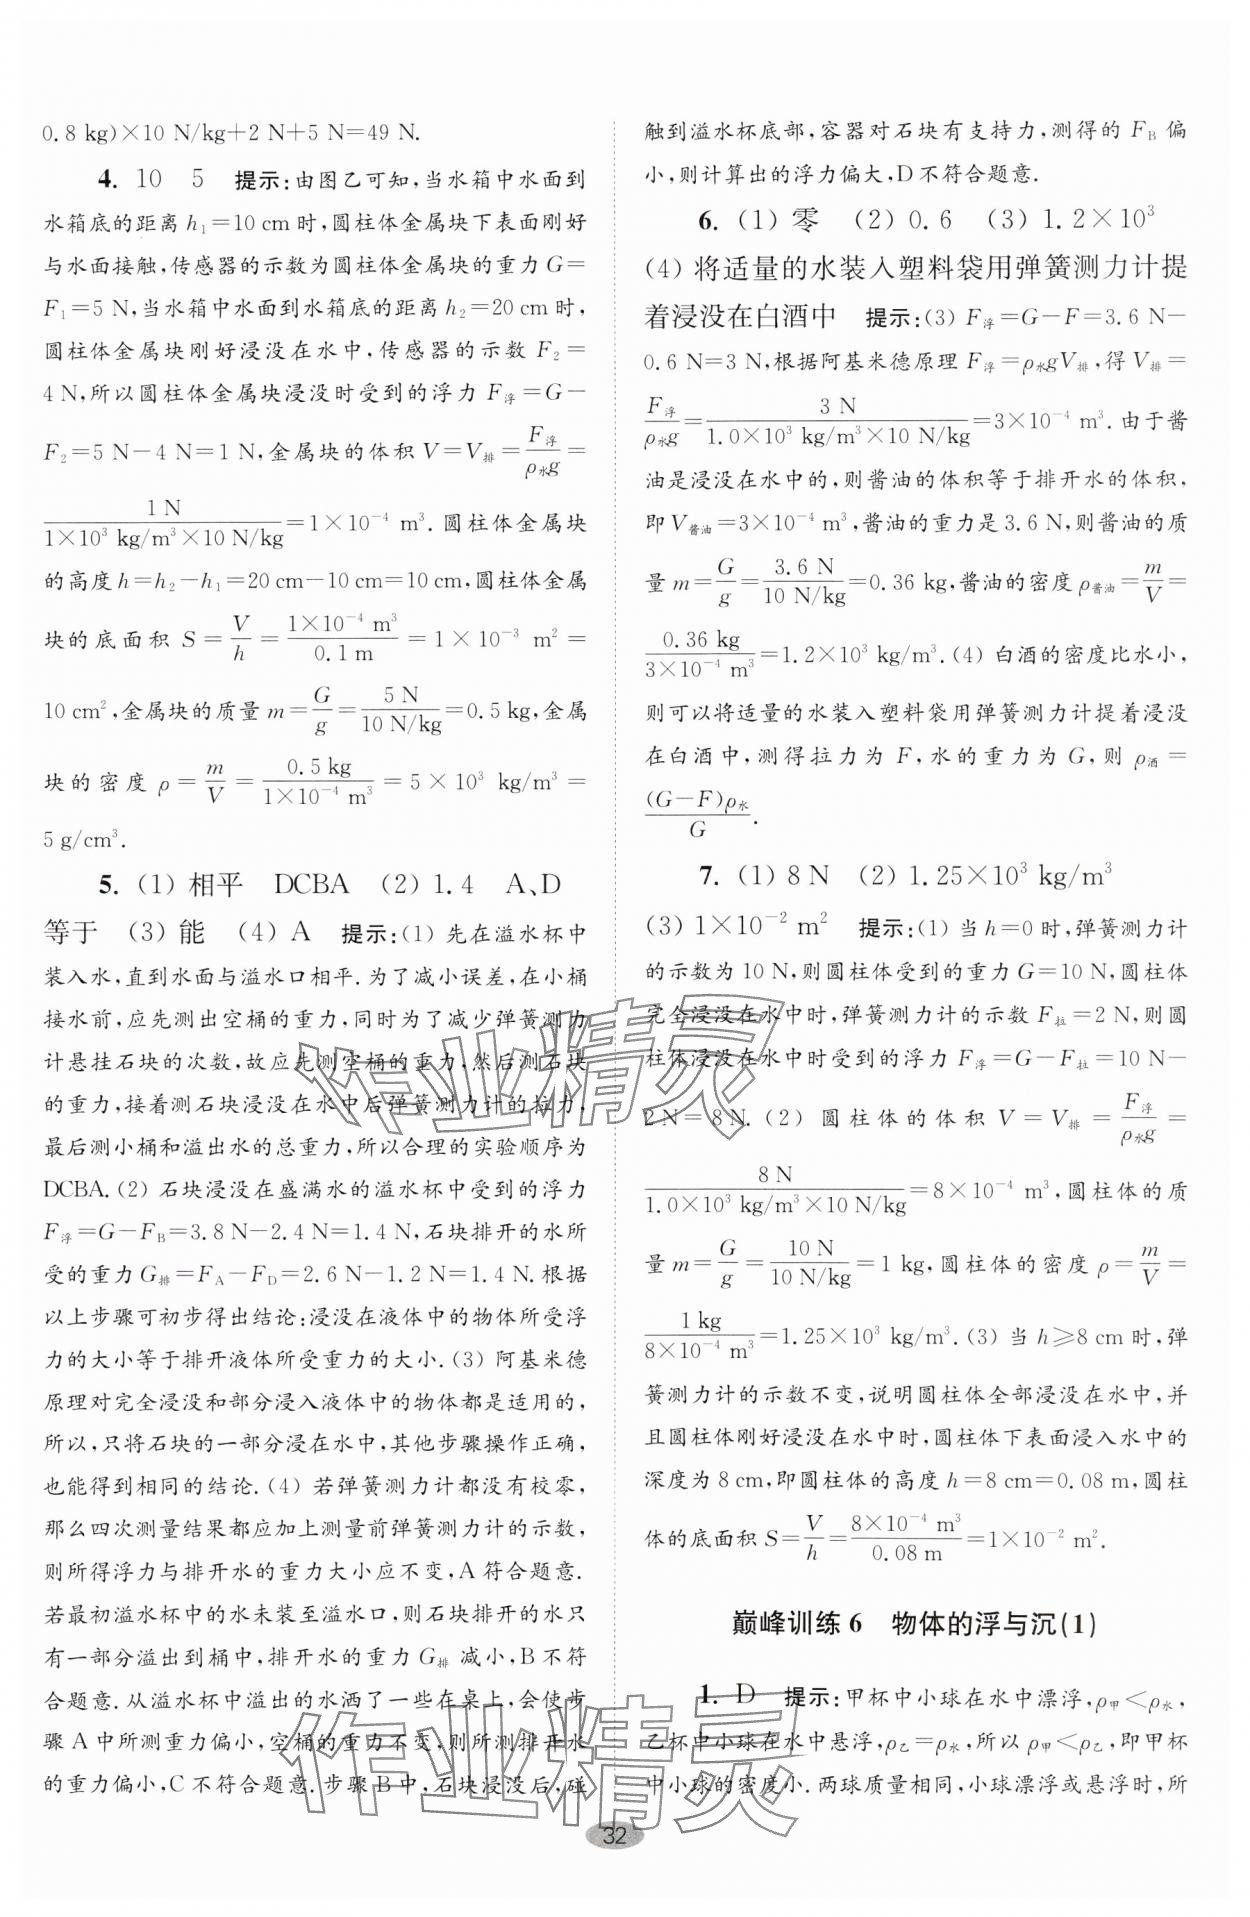 0.8 kg)×10 N/kg+2 N+5 N=49 N.
4. 10 5 提示:由图乙可知,当水箱中水面到
水箱底的距离 h₁=10 cm 时,圆柱体金属块下表面刚好
与水面接触,传感器的示数为圆柱体金属块的重力 G=
F₁=5 N,当水箱中水面到水箱底的距离 h₂=20 cm 时,
圆柱体金属块刚好浸没在水中,传感器的示数 F₂=
4 N,所以圆柱体金属块浸没时受到的浮力 F浮=G-
F₂=5 N-4 N=1 N,金属块的体积 V=V排=F浮/ρ水g=
1 N/(1×10³ kg/m³×10 N/kg)=1×10⁻⁴ m³.圆柱体金属块
的高度 h=h₂-h₁=20 cm-10 cm=10 cm,圆柱体金属
块的底面积 S=V/h=1×10⁻⁴ m³/0.1 m=1×10⁻³ m²=
10 cm²,金属块的质量 m=G/g=5 N/10 N/kg=0.5 kg,金属
块的密度 ρ=m/V=0.5 kg/1×10⁻⁴ m³=5×10³ kg/m³=
5 g/cm³.
5. (1) 相平 DCBA (2) 1.4 A、D
等于 (3) 能 (4) A 提示:(1) 先在溢水杯中
装入水,直到水面与溢水口相平.为了减小误差,在小桶
接水前,应先测出空桶的重力,同时为了减少弹簧测力
计悬挂石块的次数,故应先测空桶的重力,然后测石块
的重力,接着测石块浸没在水中后弹簧测力计的拉力,
最后测小桶和溢出水的总重力,所以合理的实验顺序为
DCBA.(2) 石块浸没在盛满水的溢水杯中受到的浮力
F浮=G-F_B=3.8 N-2.4 N=1.4 N,石块排开的水所
受的重力 G排=F_A-F_D=2.6 N-1.2 N=1.4 N.根据
以上步骤可初步得出结论:浸没在液体中的物体所受浮
力的大小等于排开液体所受重力的大小.(3) 阿基米德
原理对完全浸没和部分浸入液体中的物体都是适用的,
所以,只将石块的一部分浸在水中,其他步骤操作正确,
也能得到相同的结论.(4) 若弹簧测力计都没有校零,
那么四次测量结果都应加上测量前弹簧测力计的示数,
则所得浮力与排开水的重力大小应不变,A 符合题意.
若最初溢水杯中的水未装至溢水口,则石块排开的水只
有一部分溢出到桶中,排开水的重力 G排 减小,B 不符
合题意.从溢水杯中溢出的水洒了一些在桌上,会使步
骤 A 中所测重力偏小,空桶的重力不变,则所测排开水
的重力偏小,C 不符合题意.步骤 B 中,石块浸没后,碰
触到溢水杯底部,容器对石块有支持力,测得的 F_B 偏
小,则计算出的浮力偏大,D 不符合题意.
6. (1) 零 (2) 0.6 (3) 1.2×10³
(4) 将适量的水装入塑料袋用弹簧测力计提
着浸没在白酒中 提示:(3) F浮=G-F=3.6 N-
0.6 N=3 N,根据阿基米德原理 F浮=ρ水gV排,得 V排=
F浮/ρ水g=3 N/(1.0×10³ kg/m³×10 N/kg)=3×10⁻⁴ m³.由于酱
油是浸没在水中的,则酱油的体积等于排开水的体积,
即 V酱油=3×10⁻⁴ m³,酱油的重力是 3.6 N,则酱油的质
量 m=G/g=3.6 N/10 N/kg=0.36 kg,酱油的密度 ρ酱油=m/V=
0.36 kg/3×10⁻⁴ m³=1.2×10³ kg/m³.(4) 白酒的密度比水小,
则可以将适量的水装入塑料袋用弹簧测力计提着浸没
在白酒中,测得拉力为 F,水的重力为 G,则 ρ酒=
(G-F)ρ水/G.
7. (1) 8 N (2) 1.25×10³ kg/m³
(3) 1×10⁻² m² 提示:(1) 当 h=0 时,弹簧测力计
的示数为 10 N,则圆柱体受到的重力 G=10 N,圆柱体
完全浸没在水中时,弹簧测力计的示数 F拉=2 N,则圆
柱体浸没在水中时受到的浮力 F浮=G-F拉=10 N-
2 N=8 N.(2) 圆柱体的体积 V=V排=F浮/ρ水g=
8 N/(1.0×10³ kg/m³×10 N/kg)=8×10⁻⁴ m³,圆柱体的质
量 m=G/g=10 N/10 N/kg=1 kg,圆柱体的密度 ρ=m/V=
1 kg/8×10⁻⁴ m³=1.25×10³ kg/m³.(3) 当 h≥8 cm 时,弹
簧测力计的示数不变,说明圆柱体全部浸没在水中,并
且圆柱体刚好浸没在水中时,圆柱体下表面浸入水中的
深度为 8 cm,即圆柱体的高度 h=8 cm=0.08 m,圆柱
体的底面积 S=V/h=8×10⁻⁴ m³/0.08 m=1×10⁻² m².
巅峰训练 6 物体的浮与沉(1)
1. D 提示:甲杯中小球在水中漂浮,ρ甲<ρ水,
乙杯中小球在水中悬浮,ρ乙=ρ水,所以 ρ甲<ρ乙,即甲杯
中小球的密度小.两球质量相同,小球漂浮或悬浮时,所
32
作业精灵
作业精灵